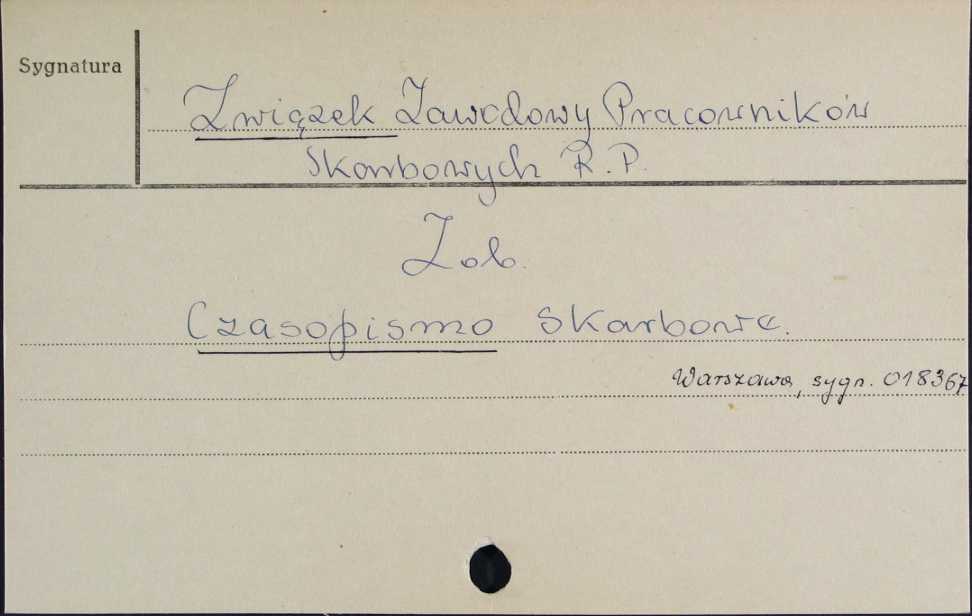 Sygnatura
Związek Zawodowy Pracowników
Skarbowych R.P.
Zob.
Czasopismo Skarbowe.
Warszawa, sygn. 018367